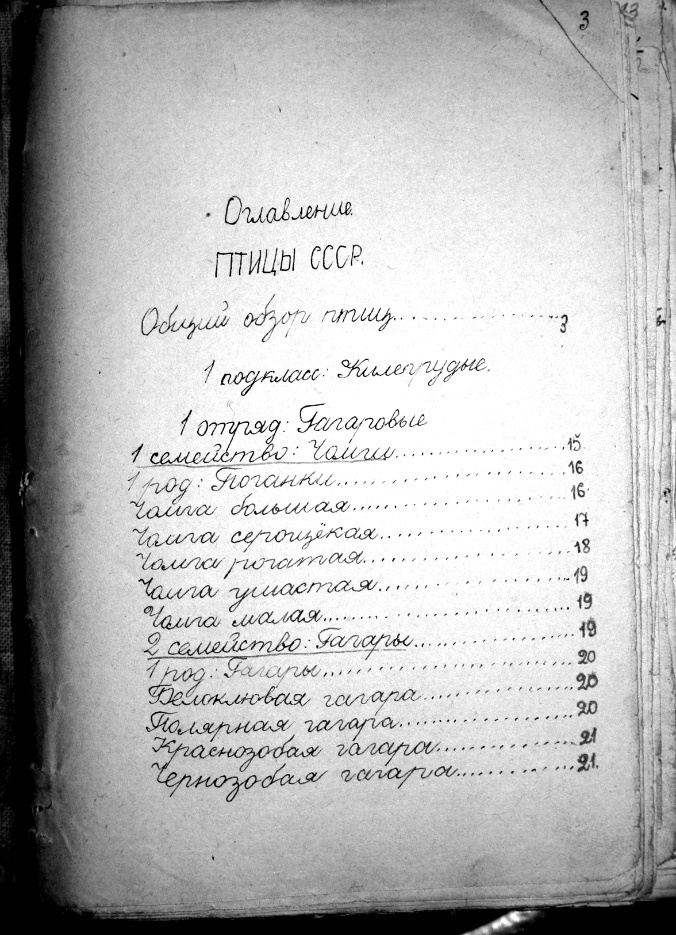 3
Оглавление.
ПТИЦЫ СССР.
Общий обзор птиц.................3
1 подкласс: Килегрудые.
1 отряд: Гагаровые
1 семейство: Чомги..................15
1 род: Поганки........................16
Чомга большая.......................16
Чомга серощёкая....................17
Чомга рогатая.......................18
Чомга ушастая.......................19
Чомга малая..........................19
2 семейство: Гагары................19
1 род: Гагары..........................20
Белоклювая гагара................20
Полярная гагара....................20
Краснозобая гагара................21
Чернозобая гагара.................21.